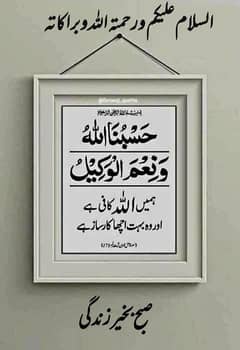 السلام علیکم ورحمتہ اللہ وبرکاتہ
بِسْمِ اللهِ الرَّحْمٰنِ الرَّحِيْمِ
حَسْبُنَا اللهُ
وَنِعْمَ الْوَكِيْلُ
ہمیں اللہ کافی ہے
اور وہ بہت اچھا کارساز ہے
صبح بخیر زندگی